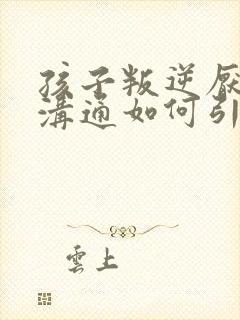 孩子叛逆厌
沟通如何引
雲上